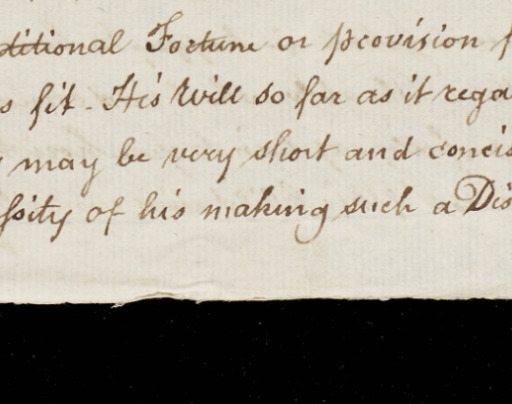 ditional Fortune or provision f
s fit - His Will so far as it rega
may be very short and concis
ssity of his making such a Dis